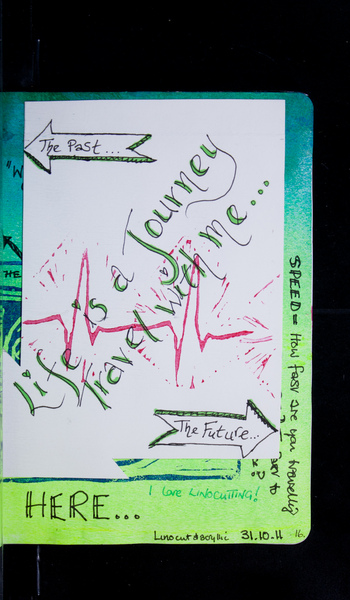 The Past...
Life is a Journey
travel with me...
The Future...
SPEED = How fast are you travelling
HE
I LOVE LINOCUTTING!
HERE...
Linocut & acrylic 31.10.11 16.